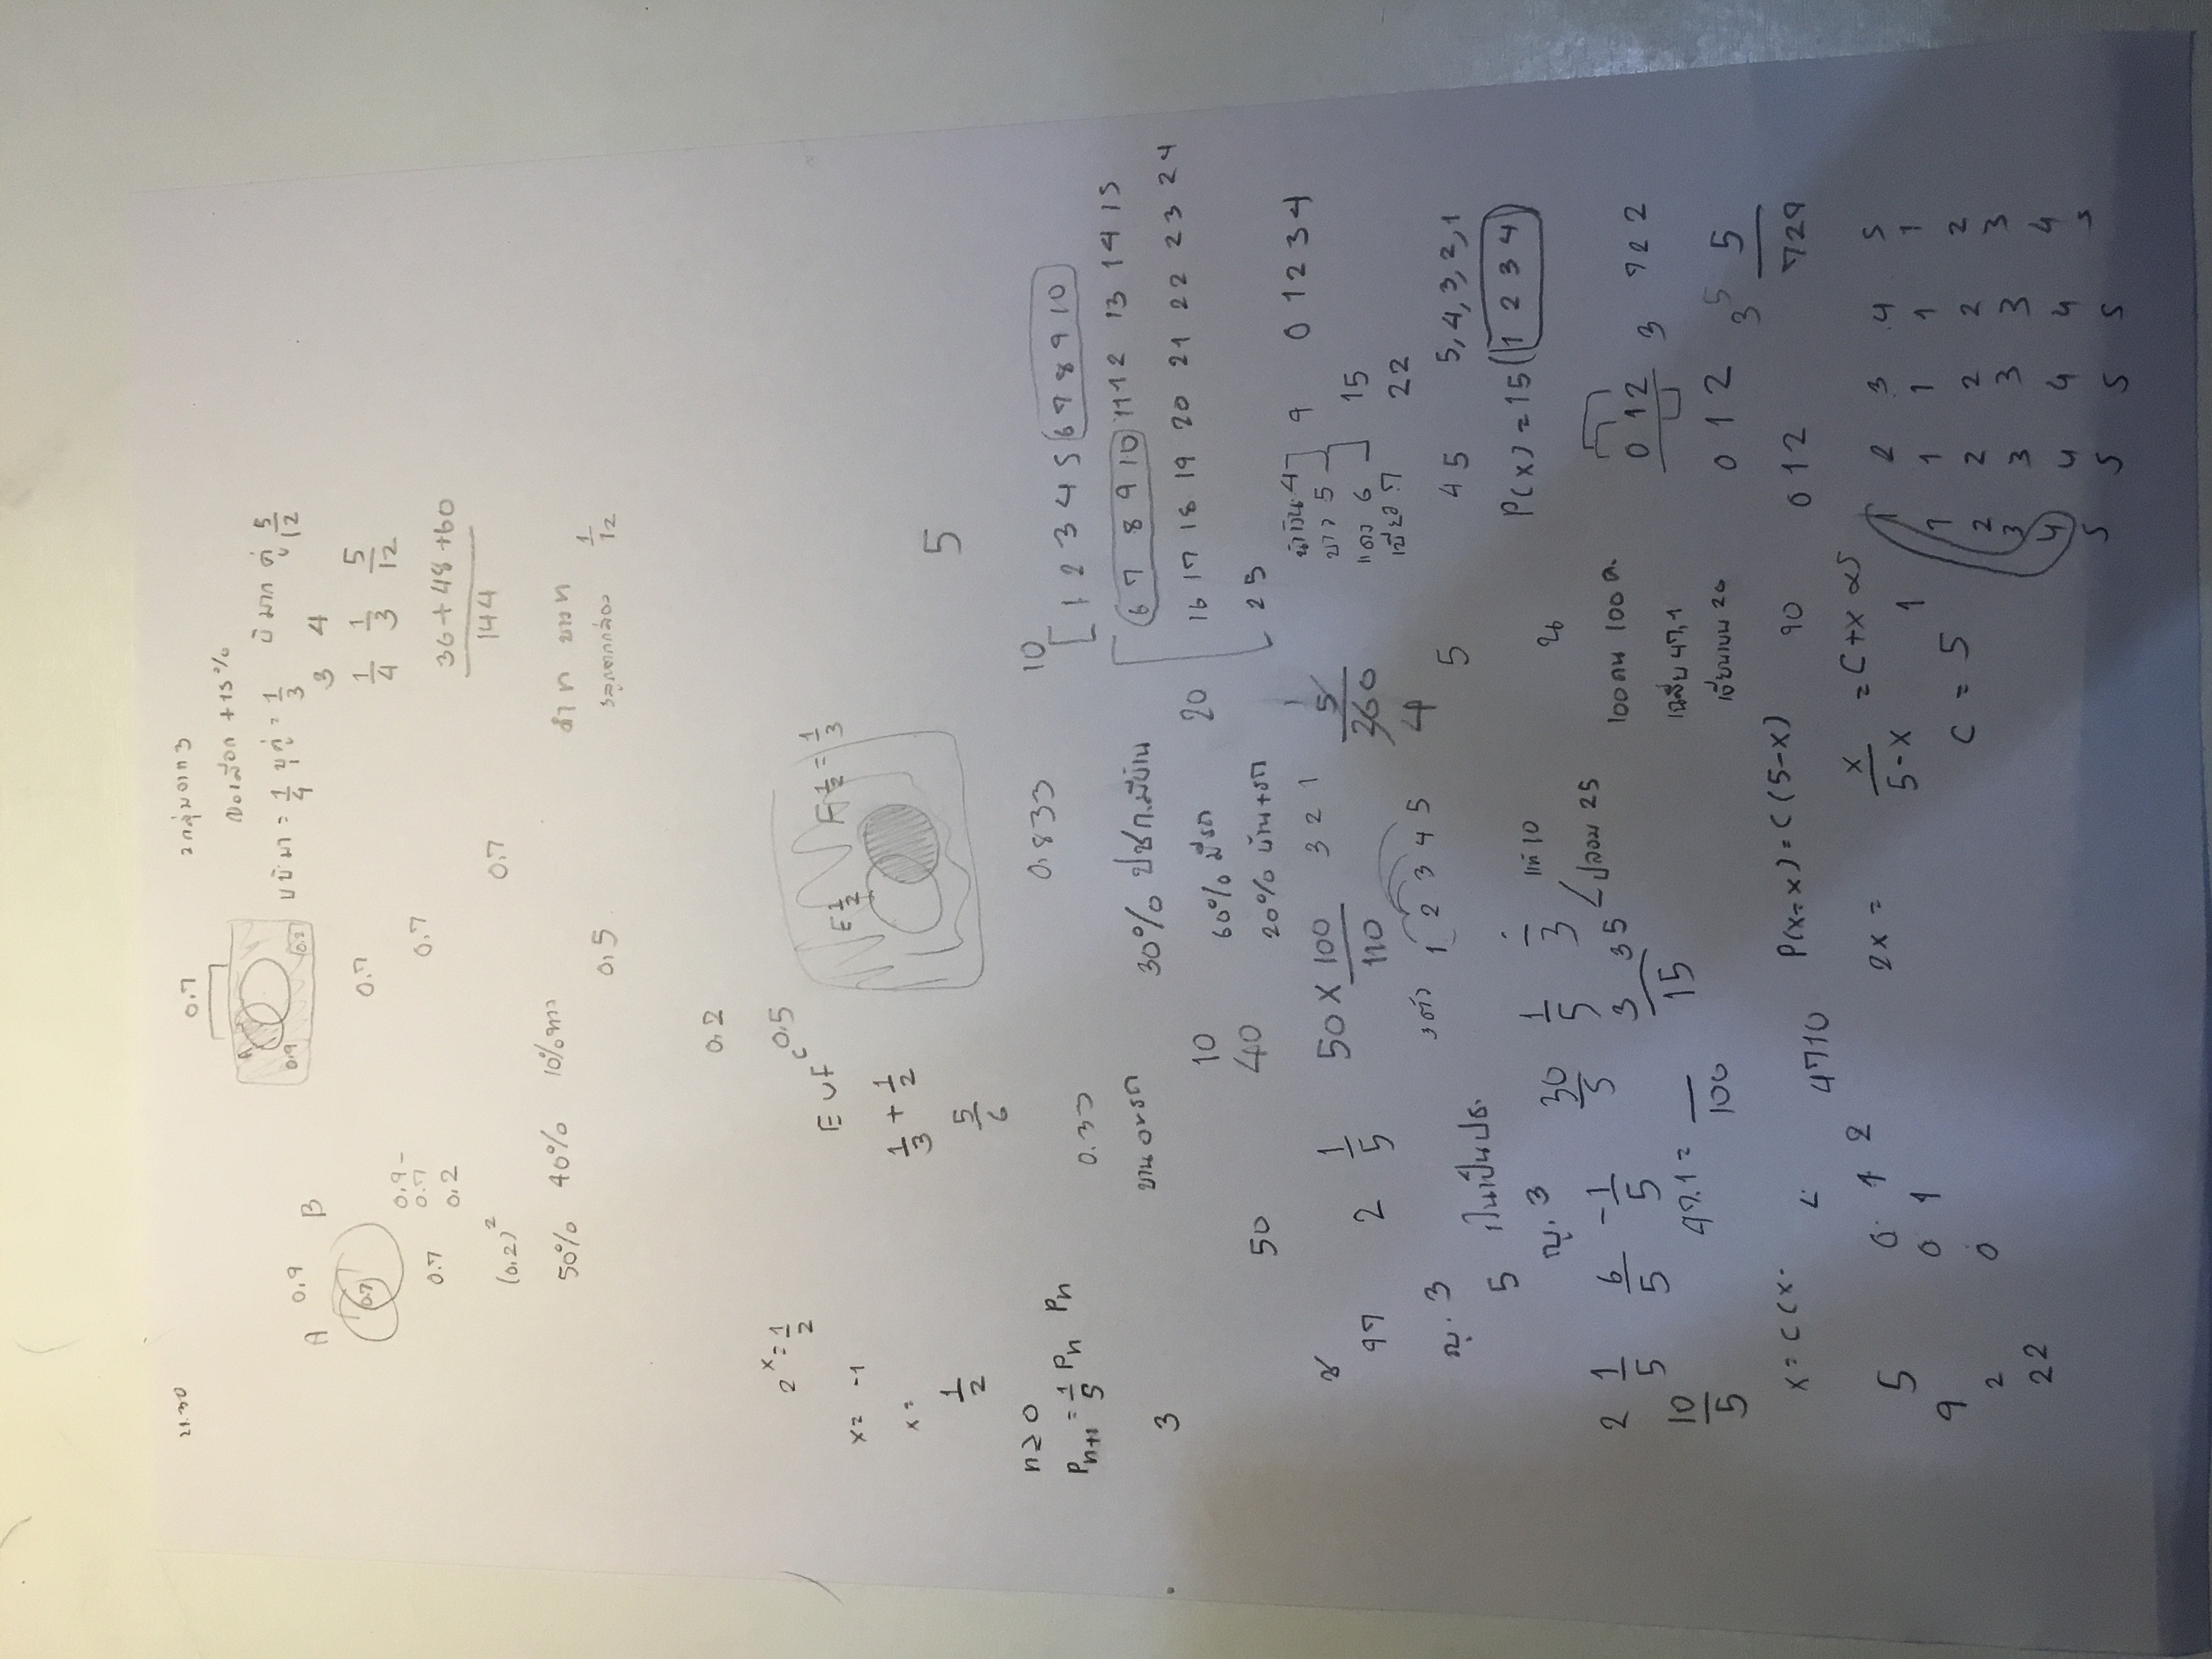 21.30
A 0.9 B
0.7
0.7
0.9 -
0.7
0.2
(0.2)²
50% 40% 10%
0.7
0.9
0.2
0.7
0.7
0.7
0.5
2 กลุ่ม
+15%
= 1/4 = 1/3 5/12
3 4
1/4 1/3 5/12
36 + 48 + 60
144
1/12
2ˣ = 1/2
x = -1
x =
1/2
0.2
0.5
E ∪ Fᶜ
1/3 + 1/2
5/6
E 1/2 F 1/2 = 1/3
5
n ≥ 0
Pn+1 = 1/5 Pn Pn
3
0.33
0.833
10
1 2 3 4 5 6 7 8 9 10
6 7 8 9 10 11 12 13 14 15
20
16 17 18 19 20 21 22 23 24
25
30% ปชก.มีบ้าน
60% มีรถ
20% บ้าน+รถ
10
40
50
50 x 100/110
3 2 1
5/360
4
น้ำเงิน 4
ขาว 5
แดง 6
เขียว 7
9
15
22
0 1 2 3 4
97
2 1/5
3 ตัว 1 2 3 4 5
5
4 5 5,4,3,2,1
ญ. 3
5
P(x) = 15 (1 2 3 4)
ญ. 3
30/5
1/5
1/3
แท้ 10
ปลอม 25
35
3
3
15
2 1/5
6/5 - 1/5
10/5
47.1 = /100
100 คน 100 ค.
เฉลี่ย 47.1
เบี่ยงเบน 20
0 12 3 722
0 1 2 3 5 5
0 1 2 729
90
P(x=x) = c(5-x)
4710
2x =
x/5-x = c+x
1
c = 5
5
9
2
22
0 1 2
0 1
0
1 2 3 4 5
1 1 1 1 1
2 2 2 2 2
3 3 3 3 3
4 4 4 4 4
5 5 5 5 5